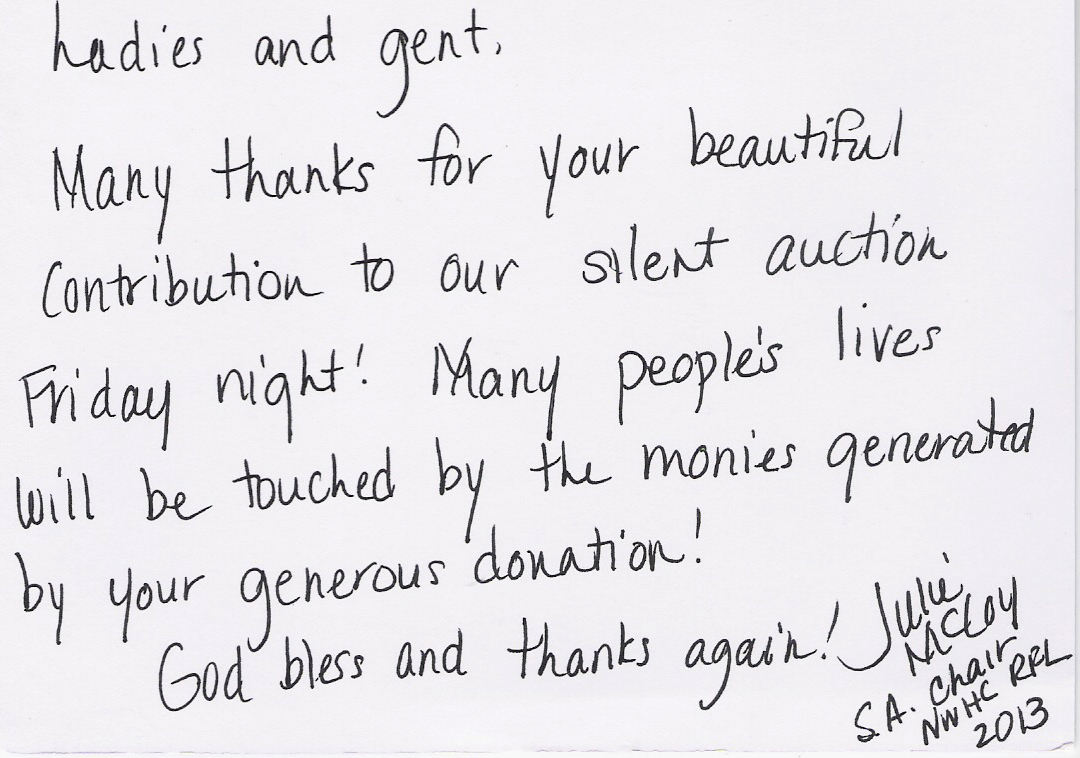 Ladies and gent,
Many thanks for your beautiful
contribution to our silent auction
Friday night! Many people's lives
will be touched by the monies generated
by your generous donation!
God bless and thanks again! Julie
McCloy
S.A. Chair
NWHC RFL
2013